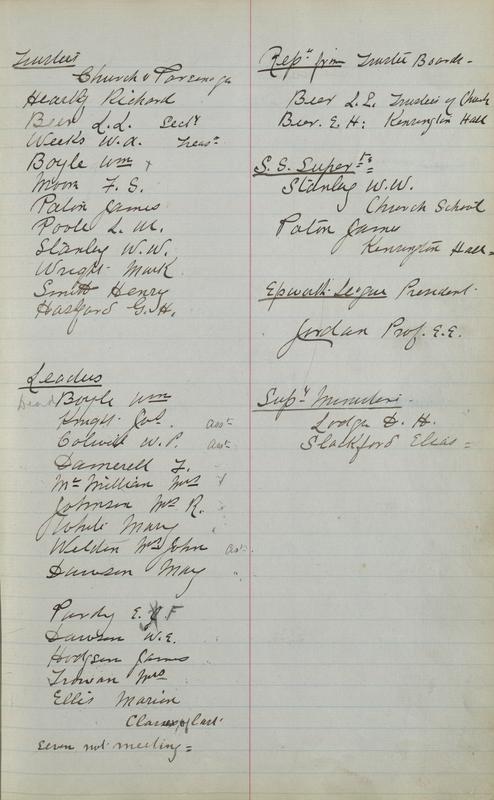 Trustees
Church & Parsonage
Heartz Richard
Beer L.L. Secty
Weeks W.A. Treasr
Boyle Wm x
Moore F. S.
Paton James
Poole L. M.
Stanley W.W.
Wright Mark
Smith Henry
G.H.
Leaders
Dead Boyle Wm
Knight Jos. asst
Colwill W.P. asst
Damerell F.
McMillian Mrs x
Johnson Mrs R.
White Mary
Weldon Mrs John asst
Dawson May
Purdy E. F
Dawson W.E.
Hodgson James
Trowan Mrs
Ellis Marion
Classes of Cart.
Seven not meeting =
Repn from Trustee Boards -
Beer L.L. Trustees of Church
Beer. E. H: Kensington Hall
S.S. Superts
Stanley W.W.
Church School
Paton James
Kensington Hall =
Epworth League President.
Jordan Prof. E.E.
Supy Ministers.
Lodge D. H.
Slackford Elias =